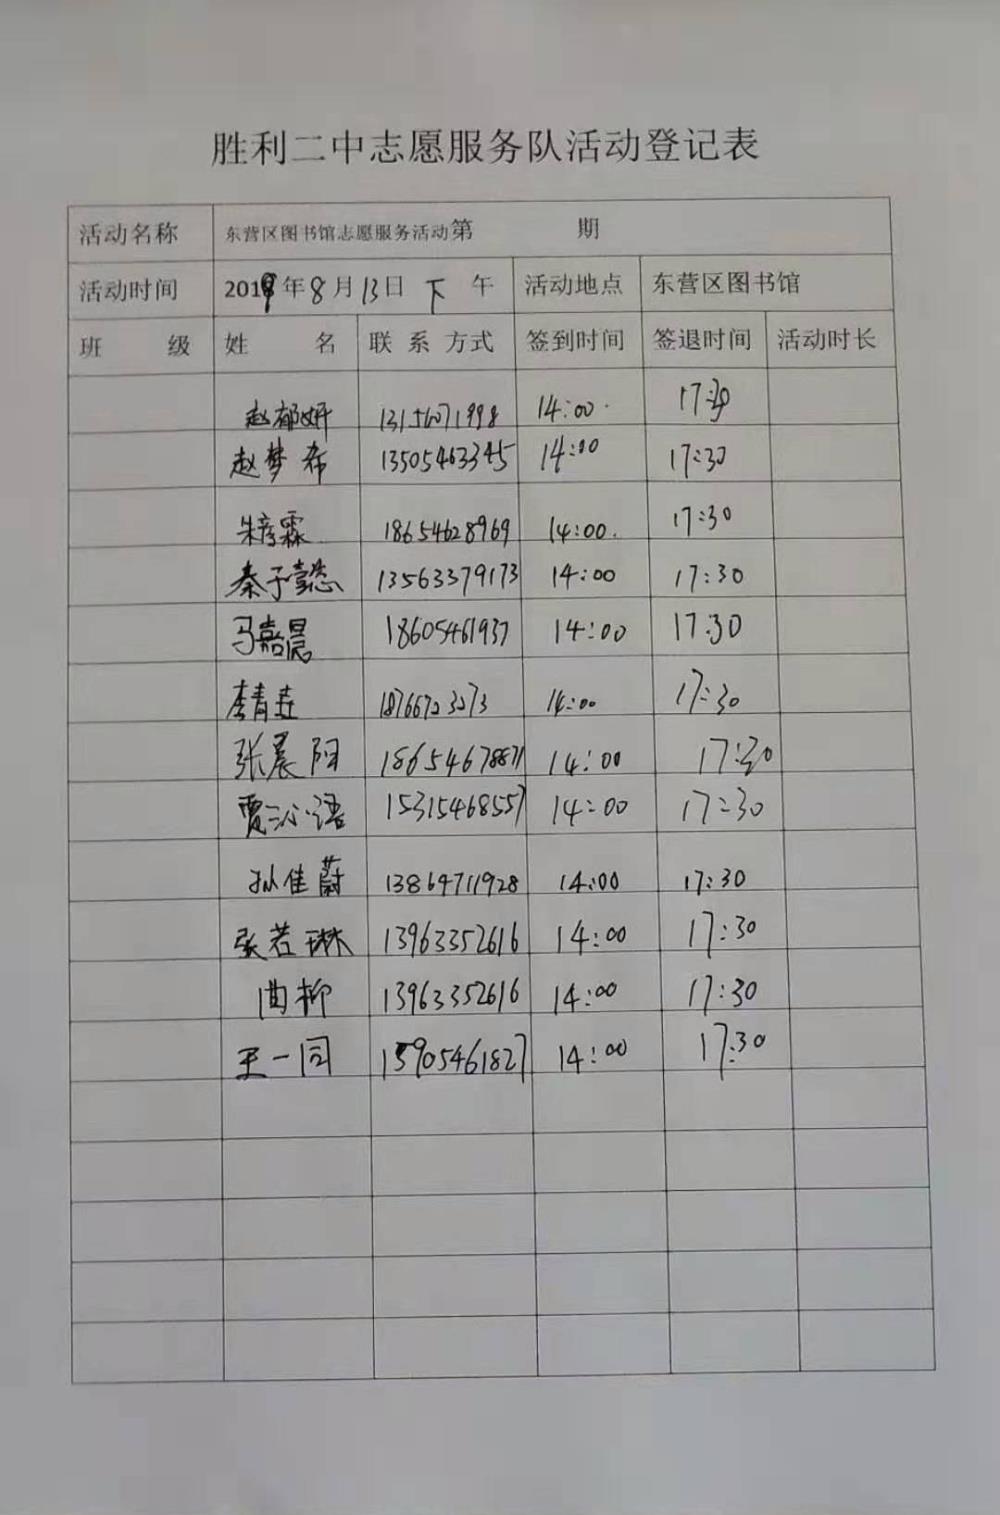 胜利二中志愿服务队活动登记表
活动名称 东营区图书馆志愿服务活动第 期
活动时间 2019年8月13日 下 午 活动地点 东营区图书馆
班 级 姓 名 联 系 方式 签到时间 签退时间 活动时长
赵郁妍 13156071998 14:00 17:30
赵梦希 13505463345 14:00 17:30
朱彦霖 18654628969 14:00 17:30
秦子懿 13563379173 14:00 17:30
马嘉晨 18605461937 14:00 17:30
李青 18766723273 14:00 17:30
张晨阳 18654678871 14:00 17:30
贾沁语 15315468557 14:00 17:30
孙佳蔚 13864711928 14:00 17:30
张若琳 13963352616 14:00 17:30
曲柳 13963352616 14:00 17:30
王一同 15905461827 14:00 17:30